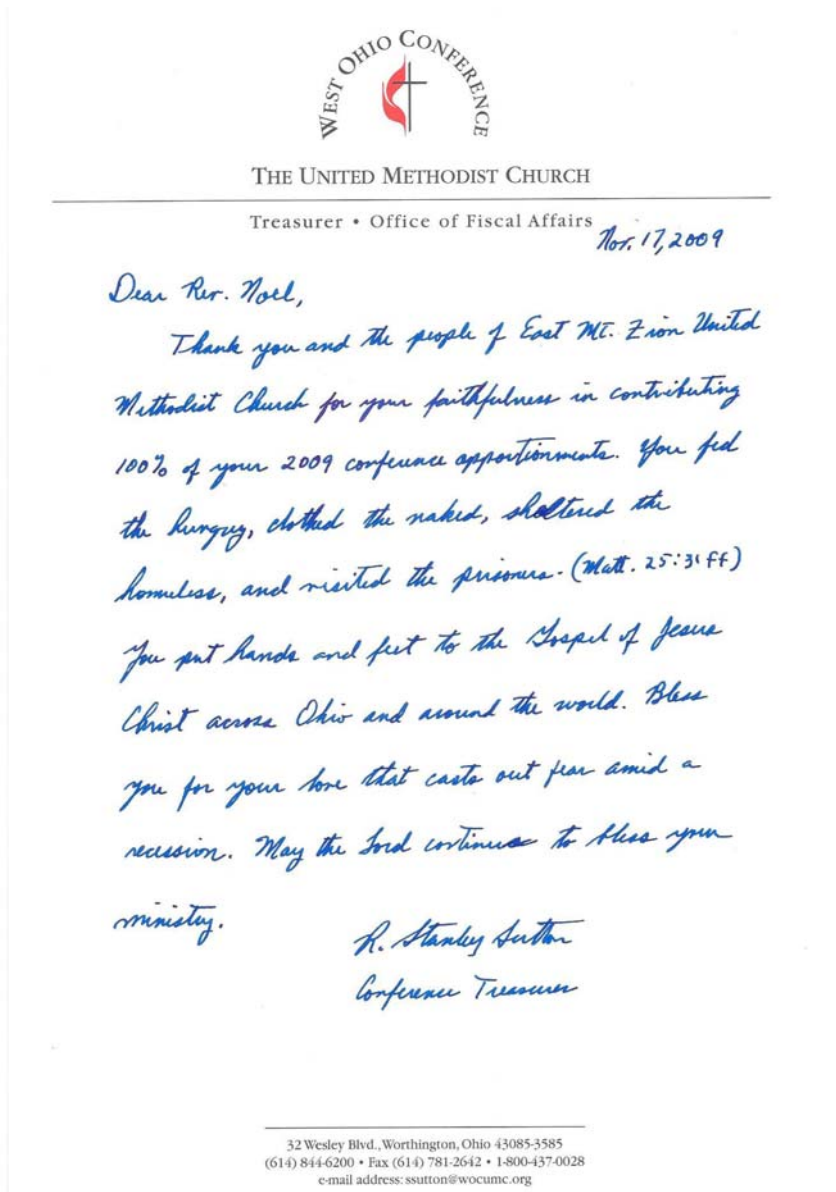 WEST OHIO CONFERENCE
THE UNITED METHODIST CHURCH
Treasurer • Office of Fiscal Affairs
Nov. 17, 2009
Dear Rev. Noel,
Thank you and the people of East Mt. Zion United
Methodist Church for your faithfulness in contributing
100% of your 2009 conference apportionments. You fed
the hungry, clothed the naked, sheltered the
homeless, and visited the prisoners. (Matt. 25:31ff)
You put hands and feet to the Gospel of Jesus
Christ across Ohio and around the world. Bless
you for your love that casts out fear amid a
recession. May the Lord continue to bless your
ministry.
R. Stanley Sutton
Conference Treasurer
32 Wesley Blvd., Worthington, Ohio 43085-3585
(614) 844-6200 • Fax (614) 781-2642 • 1-800-437-0028
e-mail address: ssutton@wocumc.org